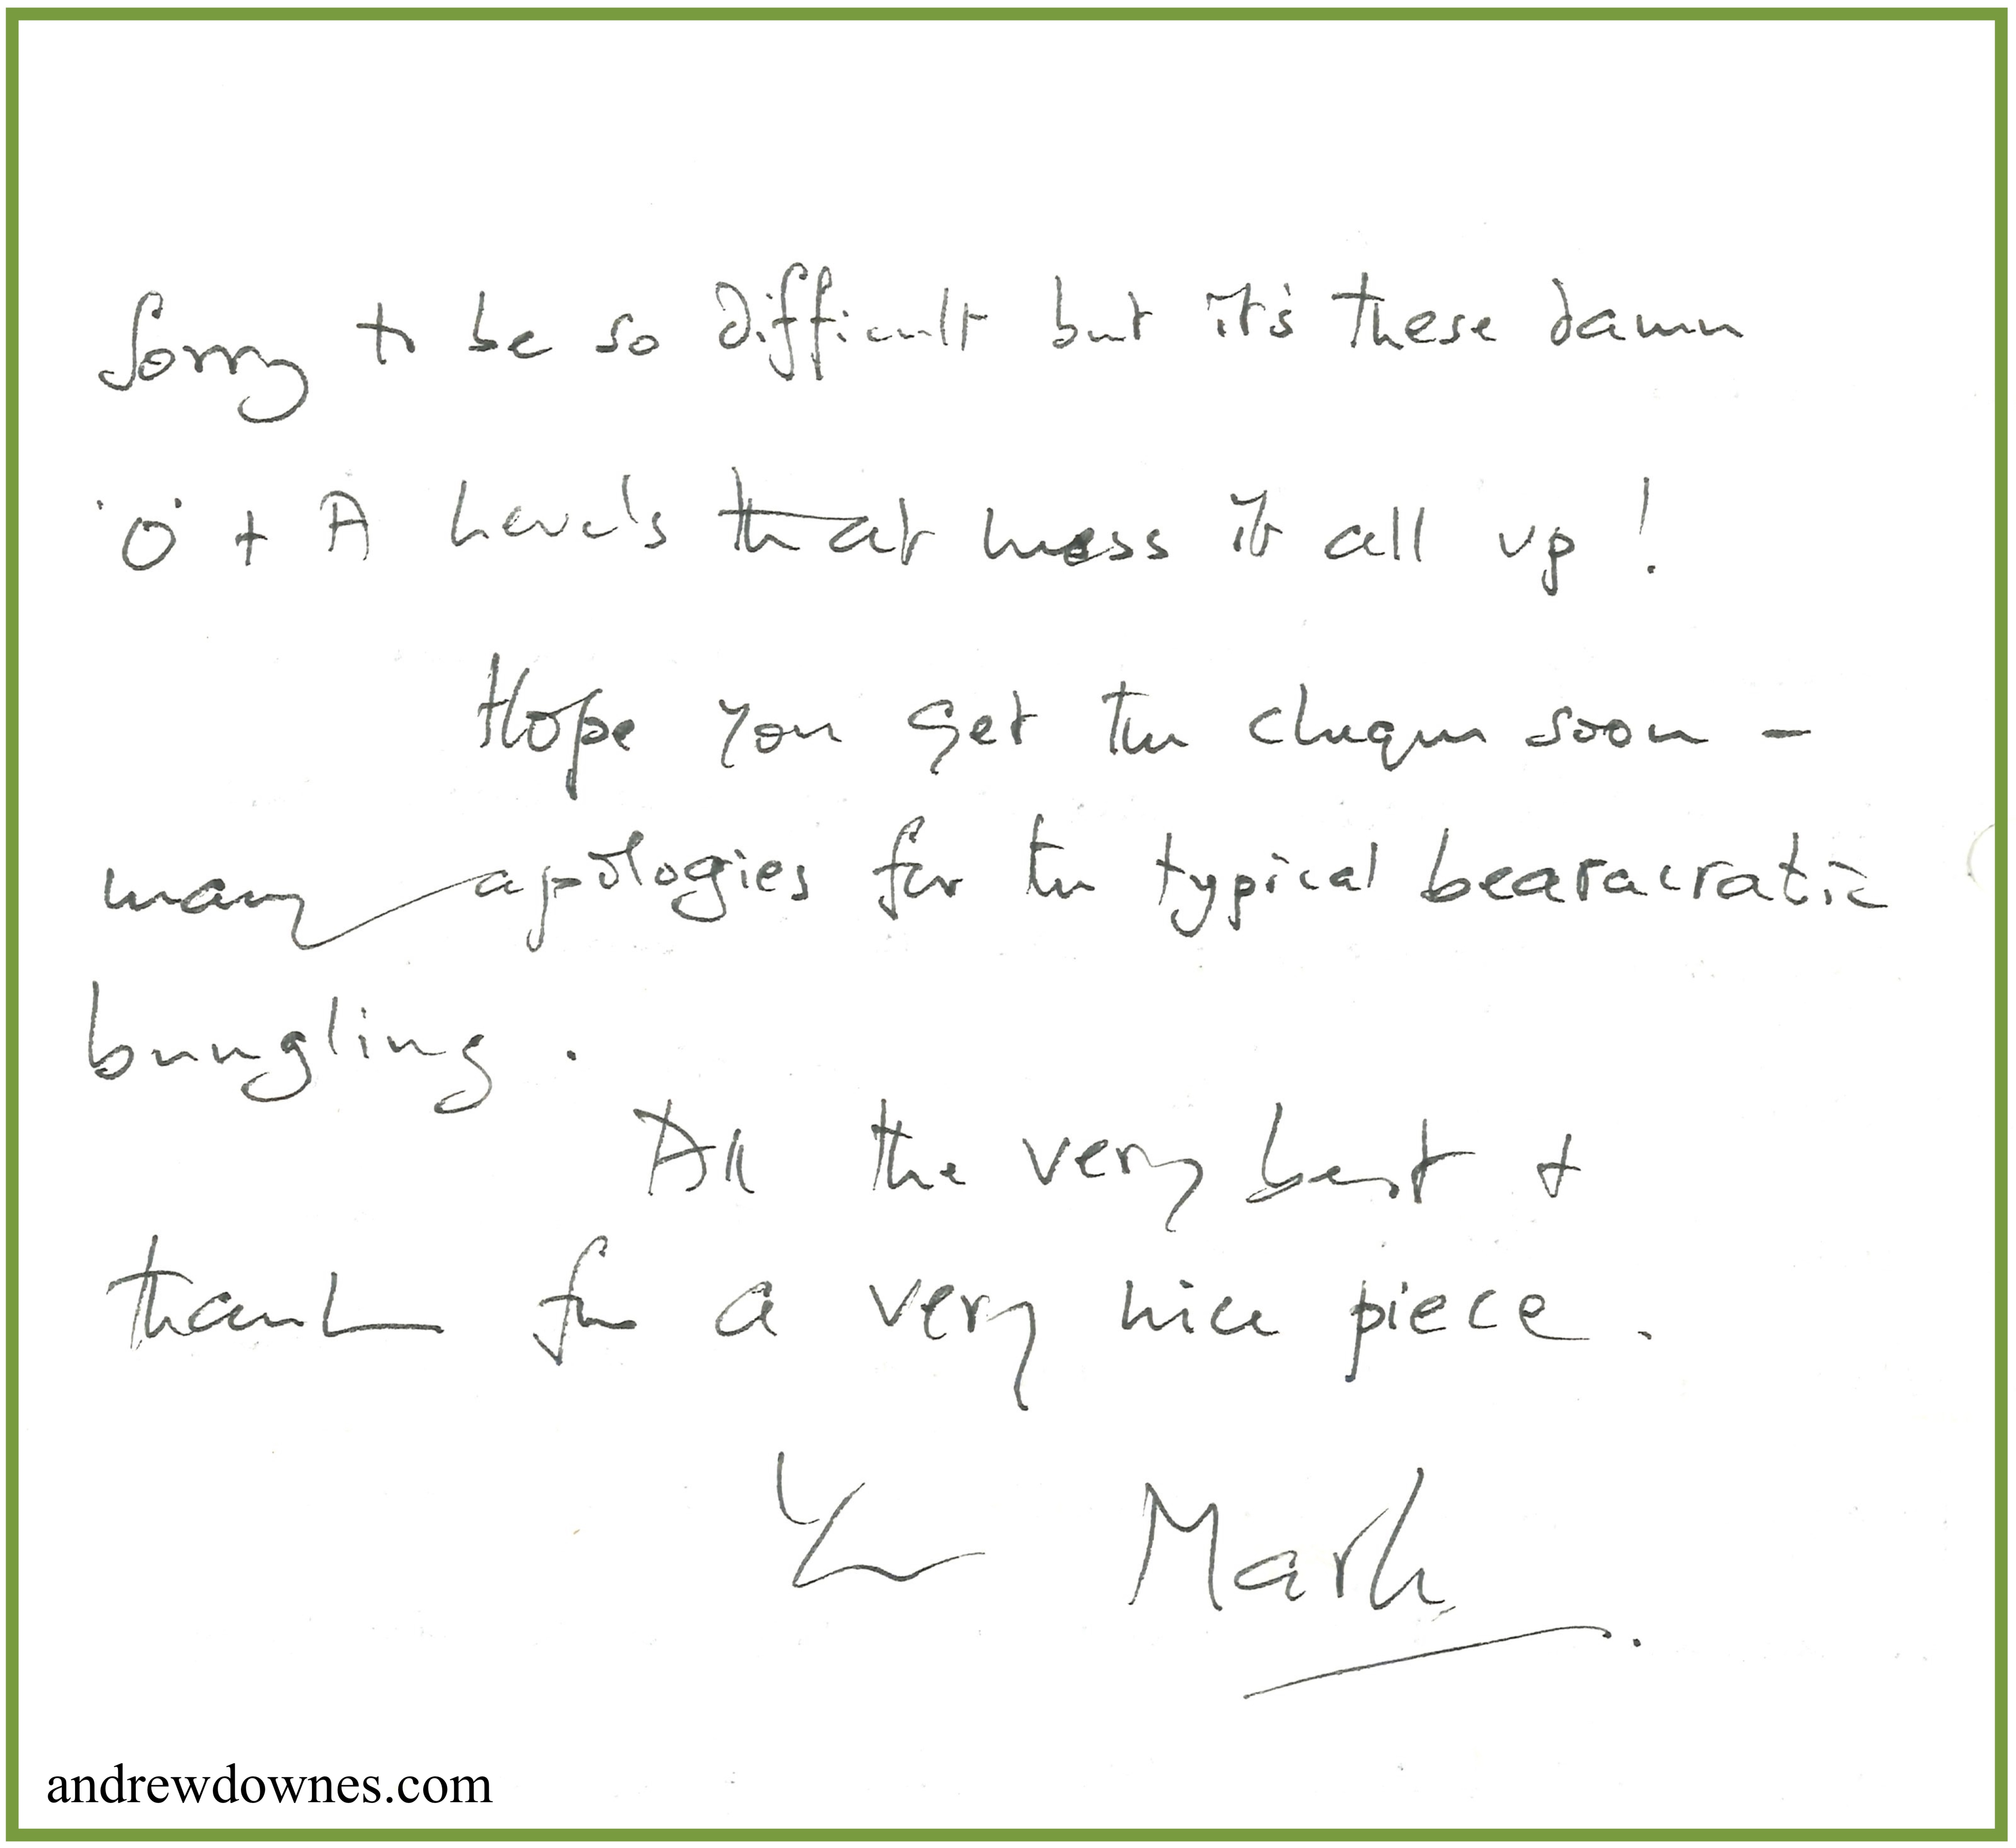 Sorry to be so difficult but it's these damn
'O' + A levels that mess it all up!
Hope you get the cheque soon -
many apologies for the typical bearacratic
bungling.
All the very best +
thanks for a very nice piece.
Mark.
andrewdownes.com